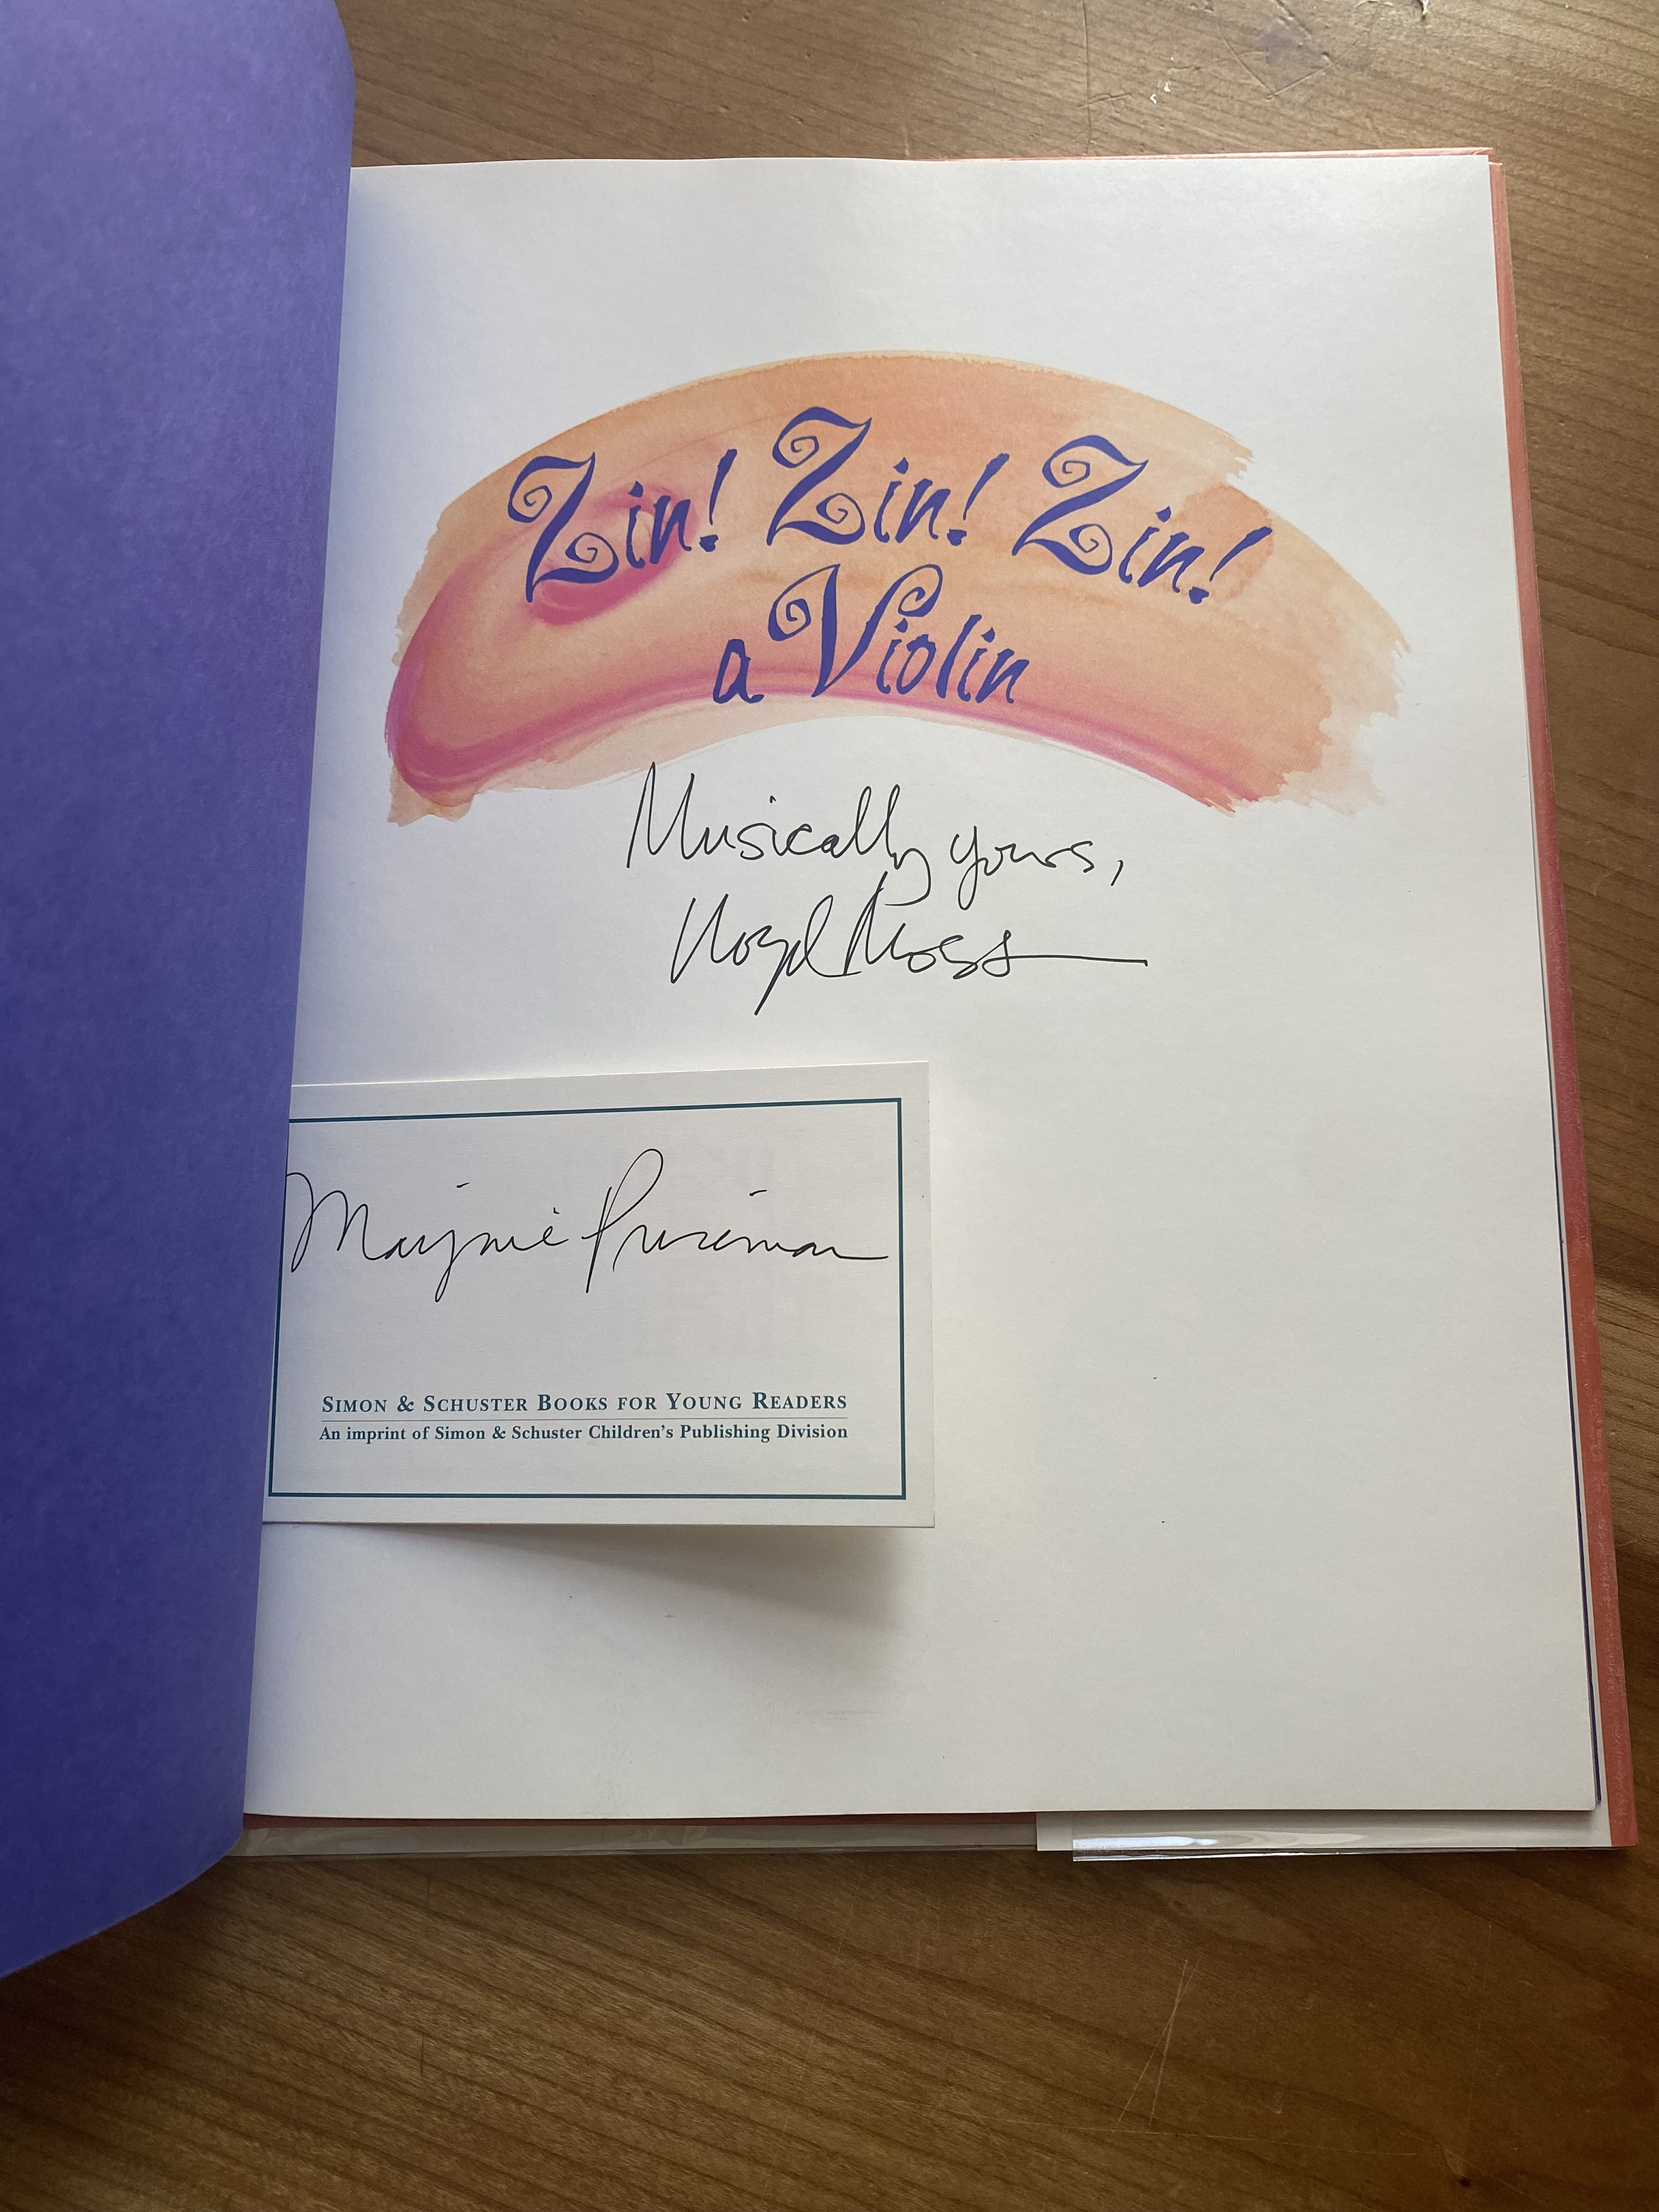 Zin! Zin! Zin!
a Violin
Musically yours,
Lloyd Moss
Marjorie Priceman
SIMON & SCHUSTER BOOKS FOR YOUNG READERS
An imprint of Simon & Schuster Children's Publishing Division